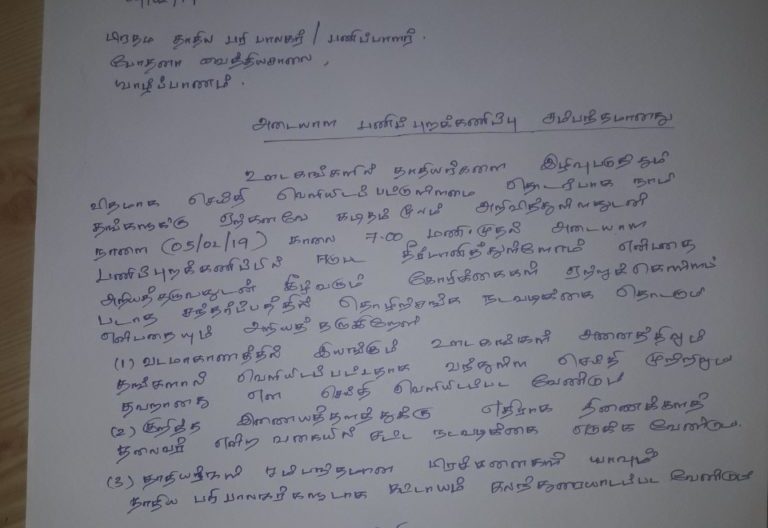 பிரதம தாதிய பரி பாலகர் / பணிப்பாளர்.
போதனா வைத்தியசாலை,
யாழ்ப்பாணம்.
அடையாள பணிப்புறக்கணிப்பு சம்பந்தமானது
ஊடகங்களில் தாதியர்களை இழிவுபடுத்தும்
விதமாக செய்தி வெளியிடப்பட்டுள்ளமை தொடர்பாக நாம்
தங்களுக்கு ஏற்கனவே கடிதம் மூலம் அறிவித்துள்ளதுடன்
நாளை (05/02/19) காலை 7.00 மணி முதல் அடையாள
பணிப்புறக்கணிப்பில் ஈடுபட தீர்மானித்துள்ளோம் என்பதை
அறியத்தருவதுடன் கீழ்வரும் கோரிக்கைகள் ஏற்றுக்கொள்ளப்
படாத சந்தர்ப்பத்தில் தொழிற்சங்க நடவடிக்கை தொடரும்
என்பதையும் அறியத் தருகிறேன்
(1) வடமாகாணத்தில் இயங்கும் ஊடகங்கள் அனைத்திலும்
தங்களால் வெளியிடப்பட்டதாக வந்துள்ள செய்தி முற்றிலும்
தவறானது என செய்தி வெளியிடப்பட வேண்டும்
(2) குறித்த இணையத்தளத்துக்கு எதிராக திணைக்களத்
தலைவர் என்ற வகையில் சட்ட நடவடிக்கை எடுக்க வேண்டும்.
(3) தாதியர்கள் சம்பந்தமான பிரச்சனைகள் யாவும்
தாதிய பரிபாலகர்களூடாக கட்டாயம் கலந்துரையாடப்பட வேண்டும்